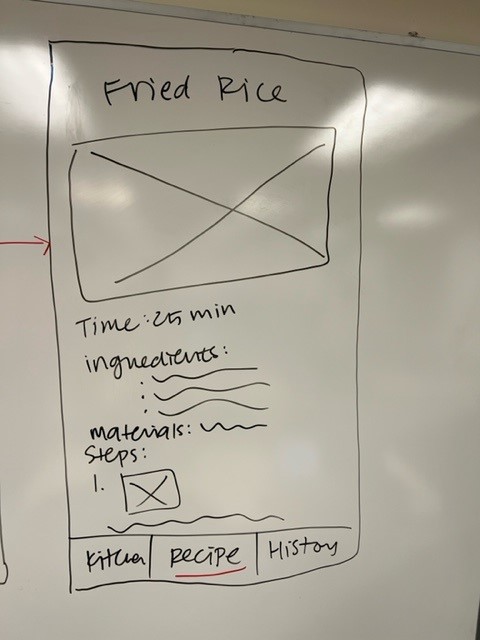 Fried Rice
Time: 25 min
ingredients:
materials:
Steps:
1.
Kitchen Recipe History